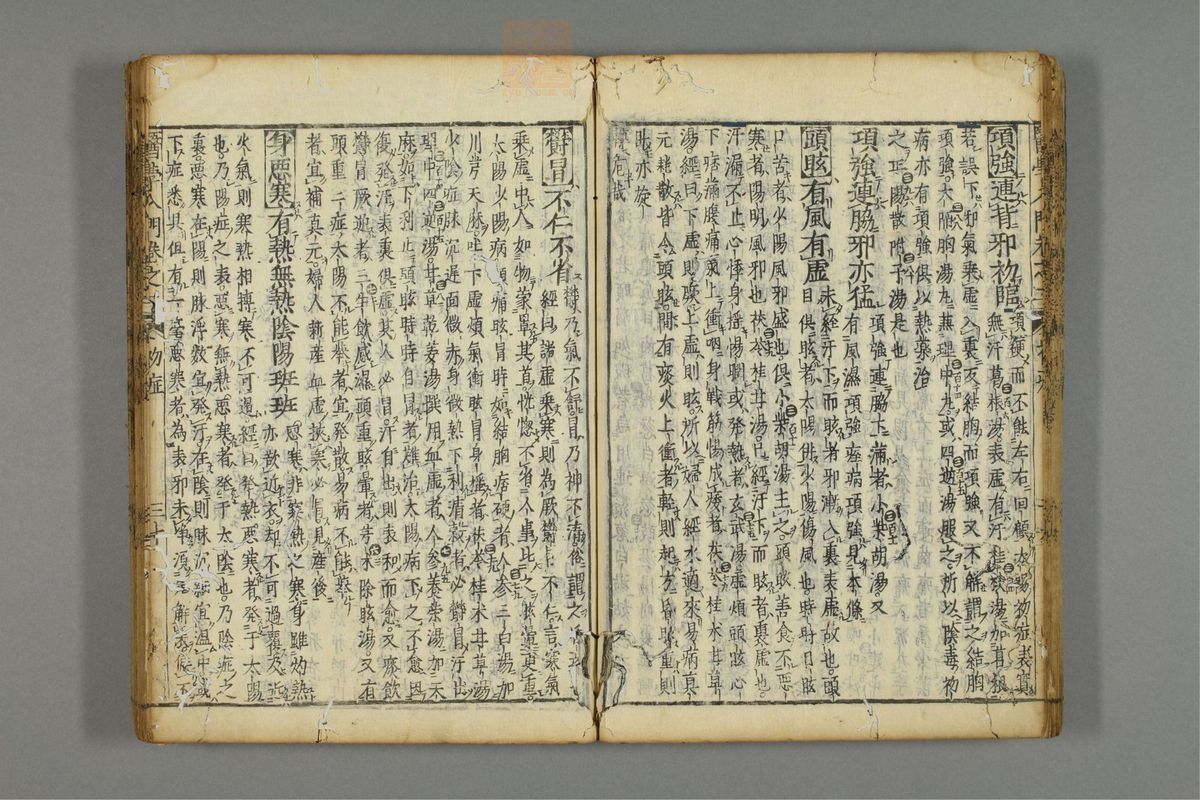 項強連背邪初臨
項硬而不能左右回顧太陽初症表實
無汗葛根湯表虛有汗桂枝湯加葛根
若誤下邪氣乘虛入裏反結胸而項強又不解謂之結胸
項強大陷胸湯九或四逆湯服之所以陰毒初
病亦有項強俱以熱藥治
之正陽散附子湯是也
項強連脇邪亦猛
項強連脇下滿者小柴胡湯又
有風濕項強痓病項強見本條
頭眩有風有虛
未經汗下而眩者邪漸入裏表虛故也頭
目俱眩者太陽併火陽傷風也時時目眩
口苦者必陽風邪盛也俱小柴胡湯主之頭眩善食不惡
寒者陽明風邪也茯苓桂甘湯已經汗下而眩者裏虛也
汗漏不止心悸身搖惕瞤或發熱者玄武湯虛煩頭眩心
下痞痛腹痛氣上衝咽身戰筋惕成痿者茯苓桂木甘草
湯經曰下虛則厥上虛則眩所以婦人經水適來易病真
元耗散皆令頭眩間有痰火上衝者輕則起方皆眩重則
臥亦旋
欝冒不仁不省
欝乃氣不舒冒乃神不清俗謂之
經曰諸虛乘寒則為厥欝上不仁言寒氣
乘虛中人如物蒙罩其首恍惚不省人事比之眩暈更重
太陽少陽病頭痛眩冒時如結胸痞硬者人參三白湯加
川芎天麻吐下虛煩氣衝眩冒身搖者茯苓桂木甘草湯
少陰症脉沉遲面微赤身微熱下利清穀者必欝冒汗出
理中四逆湯甘草乾姜湯撰用血虛者人參養榮湯加天
麻如下利止頭眩時時自冒者難治太陽病下之不愈因
復發汗表裏俱虛其人必冒汗自出則表和而愈又痰飲
欝冒厥逆者二生飲感濕頭重眩暈者芎木除眩湯又有
頭重二症太陽不能舉者宜發散易病不能舉
者宜補真元婦人新產血虛挾寒必冒見產後
身惡寒有熱無熱陰陽班班
惡寒非寒熱之寒身雖灼熱
亦欲近衣却不可過覆及近
火氣則寒熱相搏寒不可遏經曰發熱惡寒者發于太陽
也乃陽症之表惡寒無熱惡寒者發于太陰也乃陰症之
裏惡寒在陽則脉浮數宜發汗在陰則脉沉細宜温中或
下症悉具但有一毫惡寒者為表邪未淨須先解表俟不
醫學入門卷之三
三十